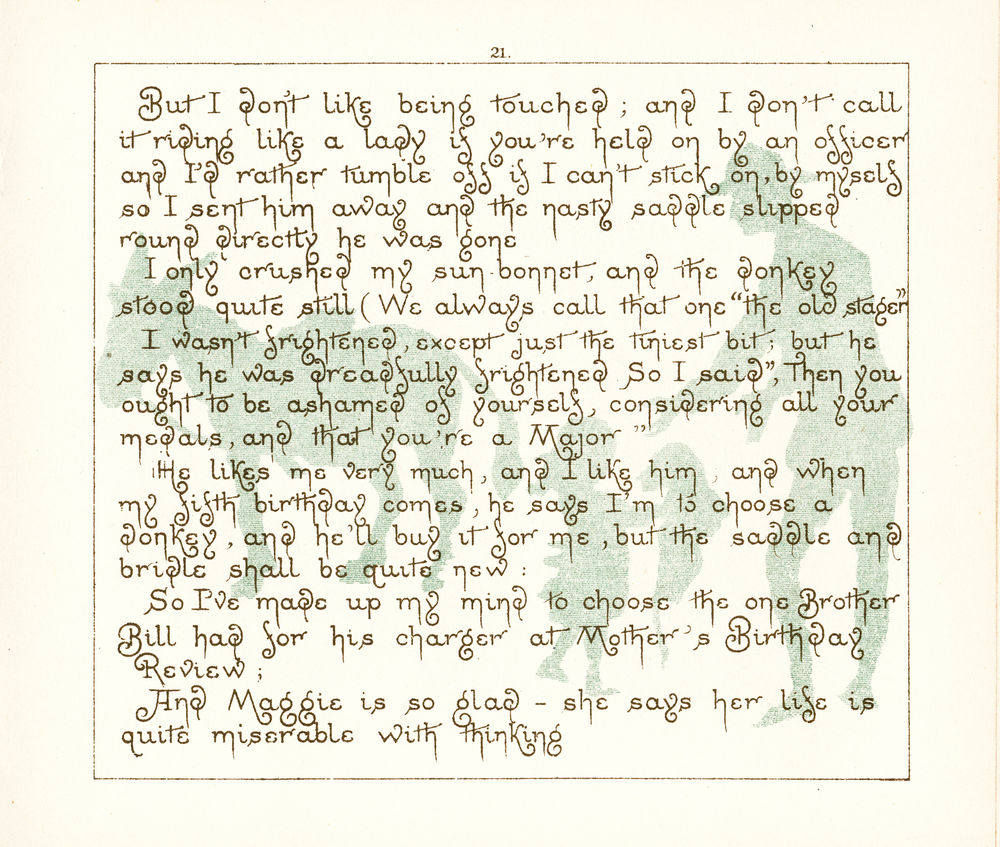 21.
But I don't like being touched ; and I don't call
it riding like a lady if you're held on by an officer
and I'd rather tumble off if I can't stick on, by myself
so I sent him away and the nasty saddle slipped
round directly he was gone
I only crushed my sun-bonnet, and the donkey
stood quite still ( We always call that one "the old stager"
I wasn't frightened, except just the tiniest bit ; but he
says he was dreadfully frightened So I said", Then you
ought to be ashamed of yourself, considering all your
medals, and that you're a Major "
He likes me very much, and I like him , and when
my fifth birthday comes, he says I'm to choose a
donkey, and he'll buy it for me, but the saddle and
bridle shall be quite new :
So I've made up my mind to choose the one Brother
Bill had for his charger at Mother's Birthday
Review ;
And Maggie is so glad - she says her life is
quite miserable with thinking